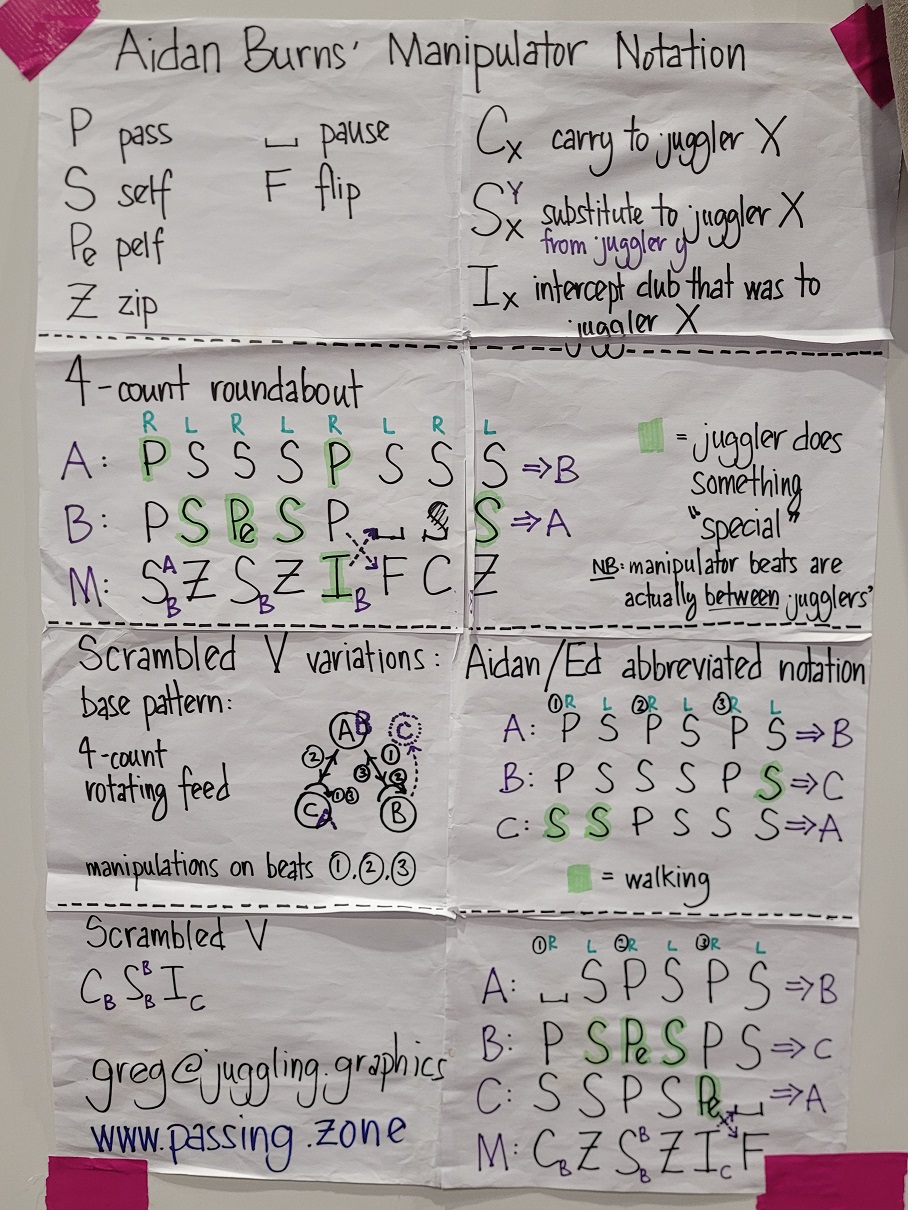 Aidan Burns' Manipulator Notation
P pass
S self
Pe pelf
Z zip
⌴ pause
F flip
Cx carry to juggler X
S^Y_X substitute to juggler X
from juggler y
Ix intercept club that was to
juggler X
4-count roundabout
R L R L R L R L
A: P S S S P S S S ⇒B
B: P S Pe S P ⌴ ⌴ S ⇒A
M: S^A_B Z S_B Z I_B F C Z
= juggler does
something
"special"
NB: manipulator beats are
actually between jugglers'
Scrambled V variations:
base pattern:
4-count
rotating feed
A B C
② ① ③ ②
C A ①③ B
manipulations on beats ①,②,③
Aidan/Ed abbreviated notation
①R L ②R L ③R L
A: P S P S P S ⇒B
B: P S S S P S ⇒C
C: S S P S S S ⇒A
= walking
Scrambled V
C_B S^B_B I_C
greg@juggling.graphics
www.passing.zone
①R L ②R L ③R L
A: ⌴ S P S P S ⇒B
B: P S Pe S P S ⇒C
C: S S P S Pe ⌴ ⇒A
M: C_B Z S^B_B Z I_C F